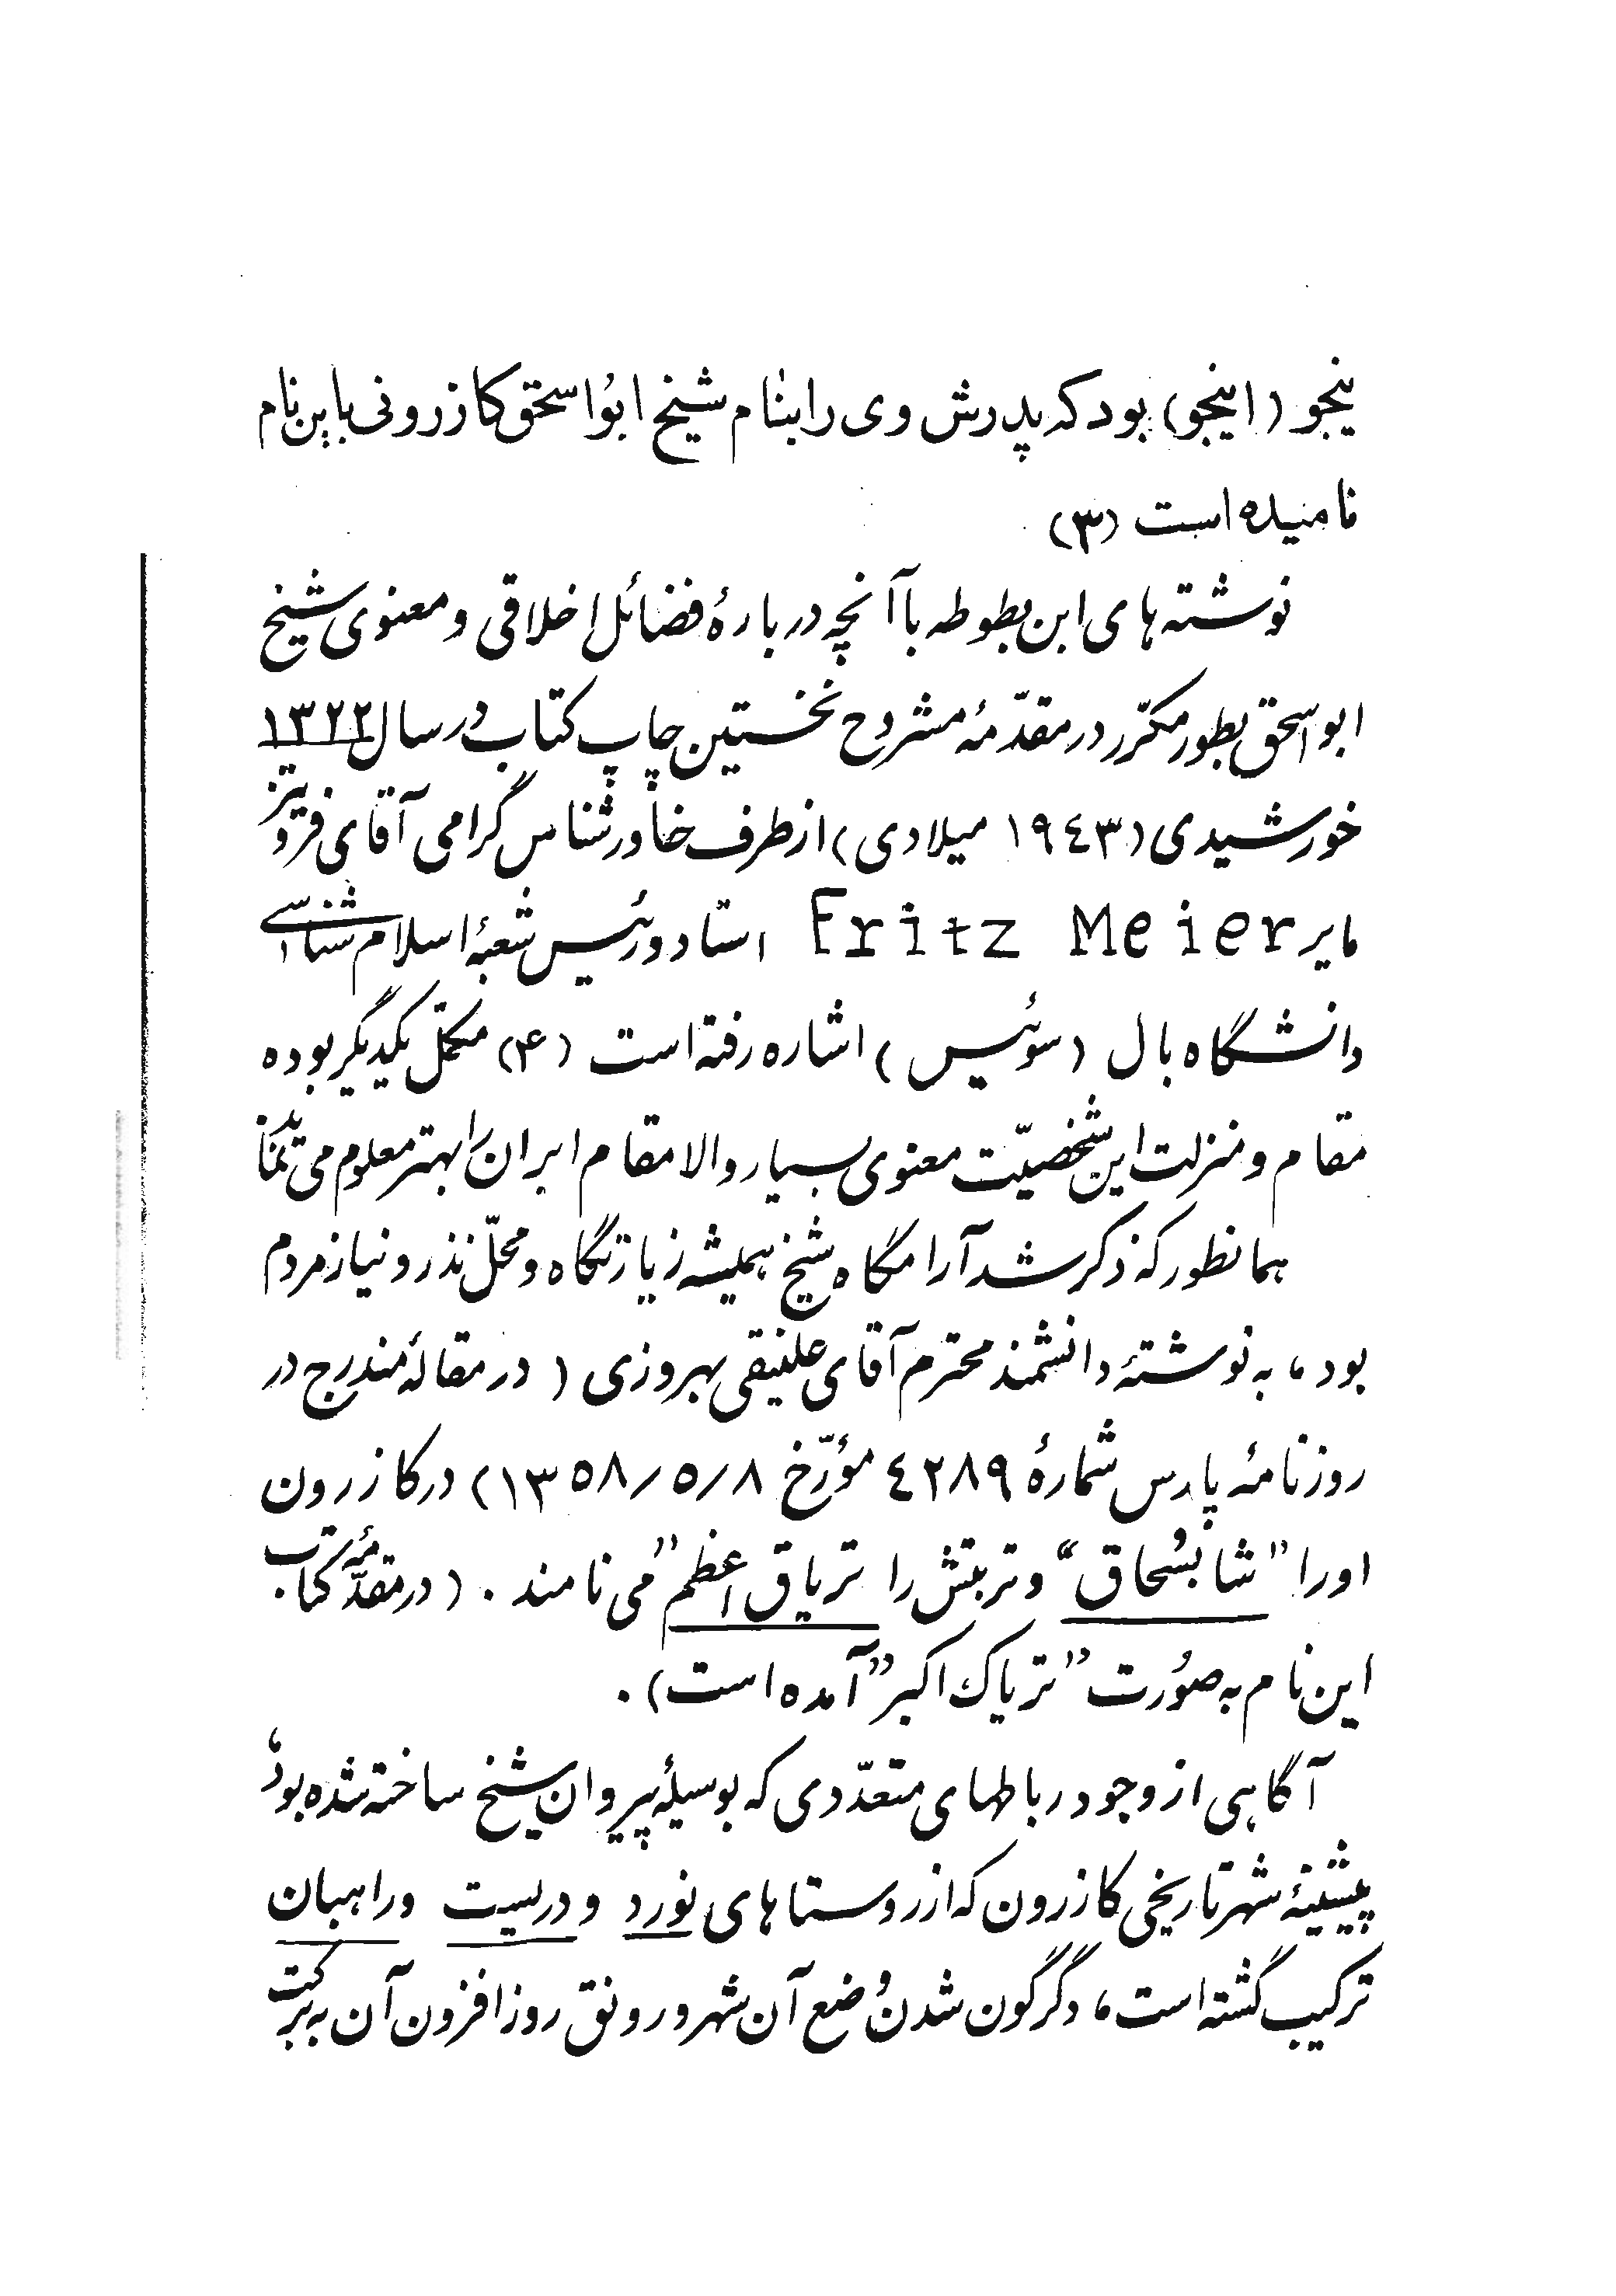 ینجو (اینجو) بود که پدرش وی را بنام شیخ ابواسحق کازرونی باین نام
نامیده است (۳)
نوشته های ابن بطوطه با آنچه دربارهٔ فضائل اخلاقی و معنوی شیخ
ابواسحق بطور مکرّر در مقدّمهٔ مشروح نخستین چاپ کتاب در سال ۱۳۲۲
خورشیدی (۱۹٤۳ میلادی) از طرف خاورشناس گرامی آقای فرویتز
مایر Fritz Meier استاد و رئیس شعبهٔ اسلام شناسی
دانشگاه بال (سوئیس) اشاره رفته است (۴) مکمّل یکدیگر بوده
مقام و منزلت این شخصیّت معنوی بسیار والامقام ایران را بهتر معلوم می نمایند
همانطور که ذکر شد آرامگاه شیخ همیشه زیارتگاه و محلّ نذر و نیاز مردم
بود، به نوشتهٔ دانشمند محترم آقای علینقی بهروزی (در مقالهٔ مندرج در
روزنامهٔ پارس شمارهٔ ٤۲۸۹ مؤرّخ ۱۳۵۸/۵/۸) در کازرون
او را "شابُسُحاق" و تربتش را تریاق اعظم" می نامند. (در مقدّمهٔ کتاب
این نام به صوُرت "تریاک اکبر" آمده است).
آگاهی از وجود رباطهای متعدّدی که بوسیلهٔ پیروان شیخ ساخته شده بود،
پیشینهٔ شهر تاریخی کازرون که از روستاهای نورد و دریست و راهبان
ترکیب گشته است، دگرگون شدن وُضع آن شهر و رونق روزافزون آن به برکت